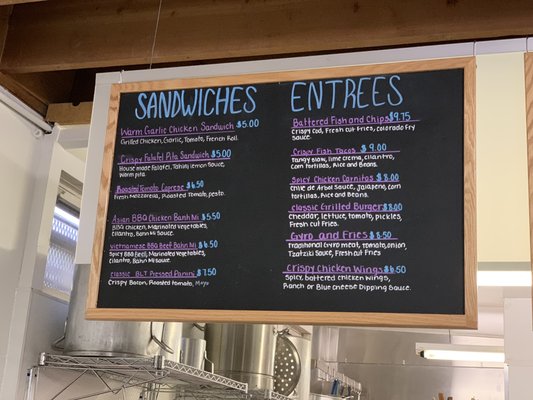 SANDWICHES
Warm Garlic Chicken Sandwich $5.00
Grilled Chicken, Garlic, Tomato, French Roll
Crispy Falafel Pita Sandwich $5.00
House made Falafel, Tahini Lemon Sauce,
Warm pita
Roasted Tomato Caprese $6.50
Fresh Mozzarella, Roasted Tomato, pesto.
Asian BBQ Chicken Banh Mi $5.50
BBQ Chicken, Marinated Vegetables,
Cilantro, Banh Mi Sauce.
Vietnamese BBQ Beef Bahn Mi $6.50
Spicy BBQ Beef, Marinated Vegetables,
Cilantro, Bahn Mi Sauce.
classic BLT Pressed Panini $7.50
Crispy Bacon, Roasted Tomato, Mayo
ENTREES
Battered Fish and Chips $9.75
Crispy Cod, Fresh cut Fries, Colorado Fry
Sauce
Crisp Fish Tacos $ 9.00
Tangy slaw, lime crema, cilantro,
Corn tortillas, Rice and Beans.
Spicy Chicken Carnitas $8.00
Chile de Arbol Sauce, Jalapeno, corn
tortillas, Rice and Beans.
Classic Grilled Burger $8.00
Cheddar, lettuce, tomato, pickles,
Fresh cut Fries.
Gyro and Fries $8.50
Traditional Gyro meat, tomato, onion,
Tzatziki Sauce, Fresh cut Fries
Crispy Chicken Wings $6.50
Spicy, battered chicken wings,
Ranch or Blue cheese Dipping Sauce.